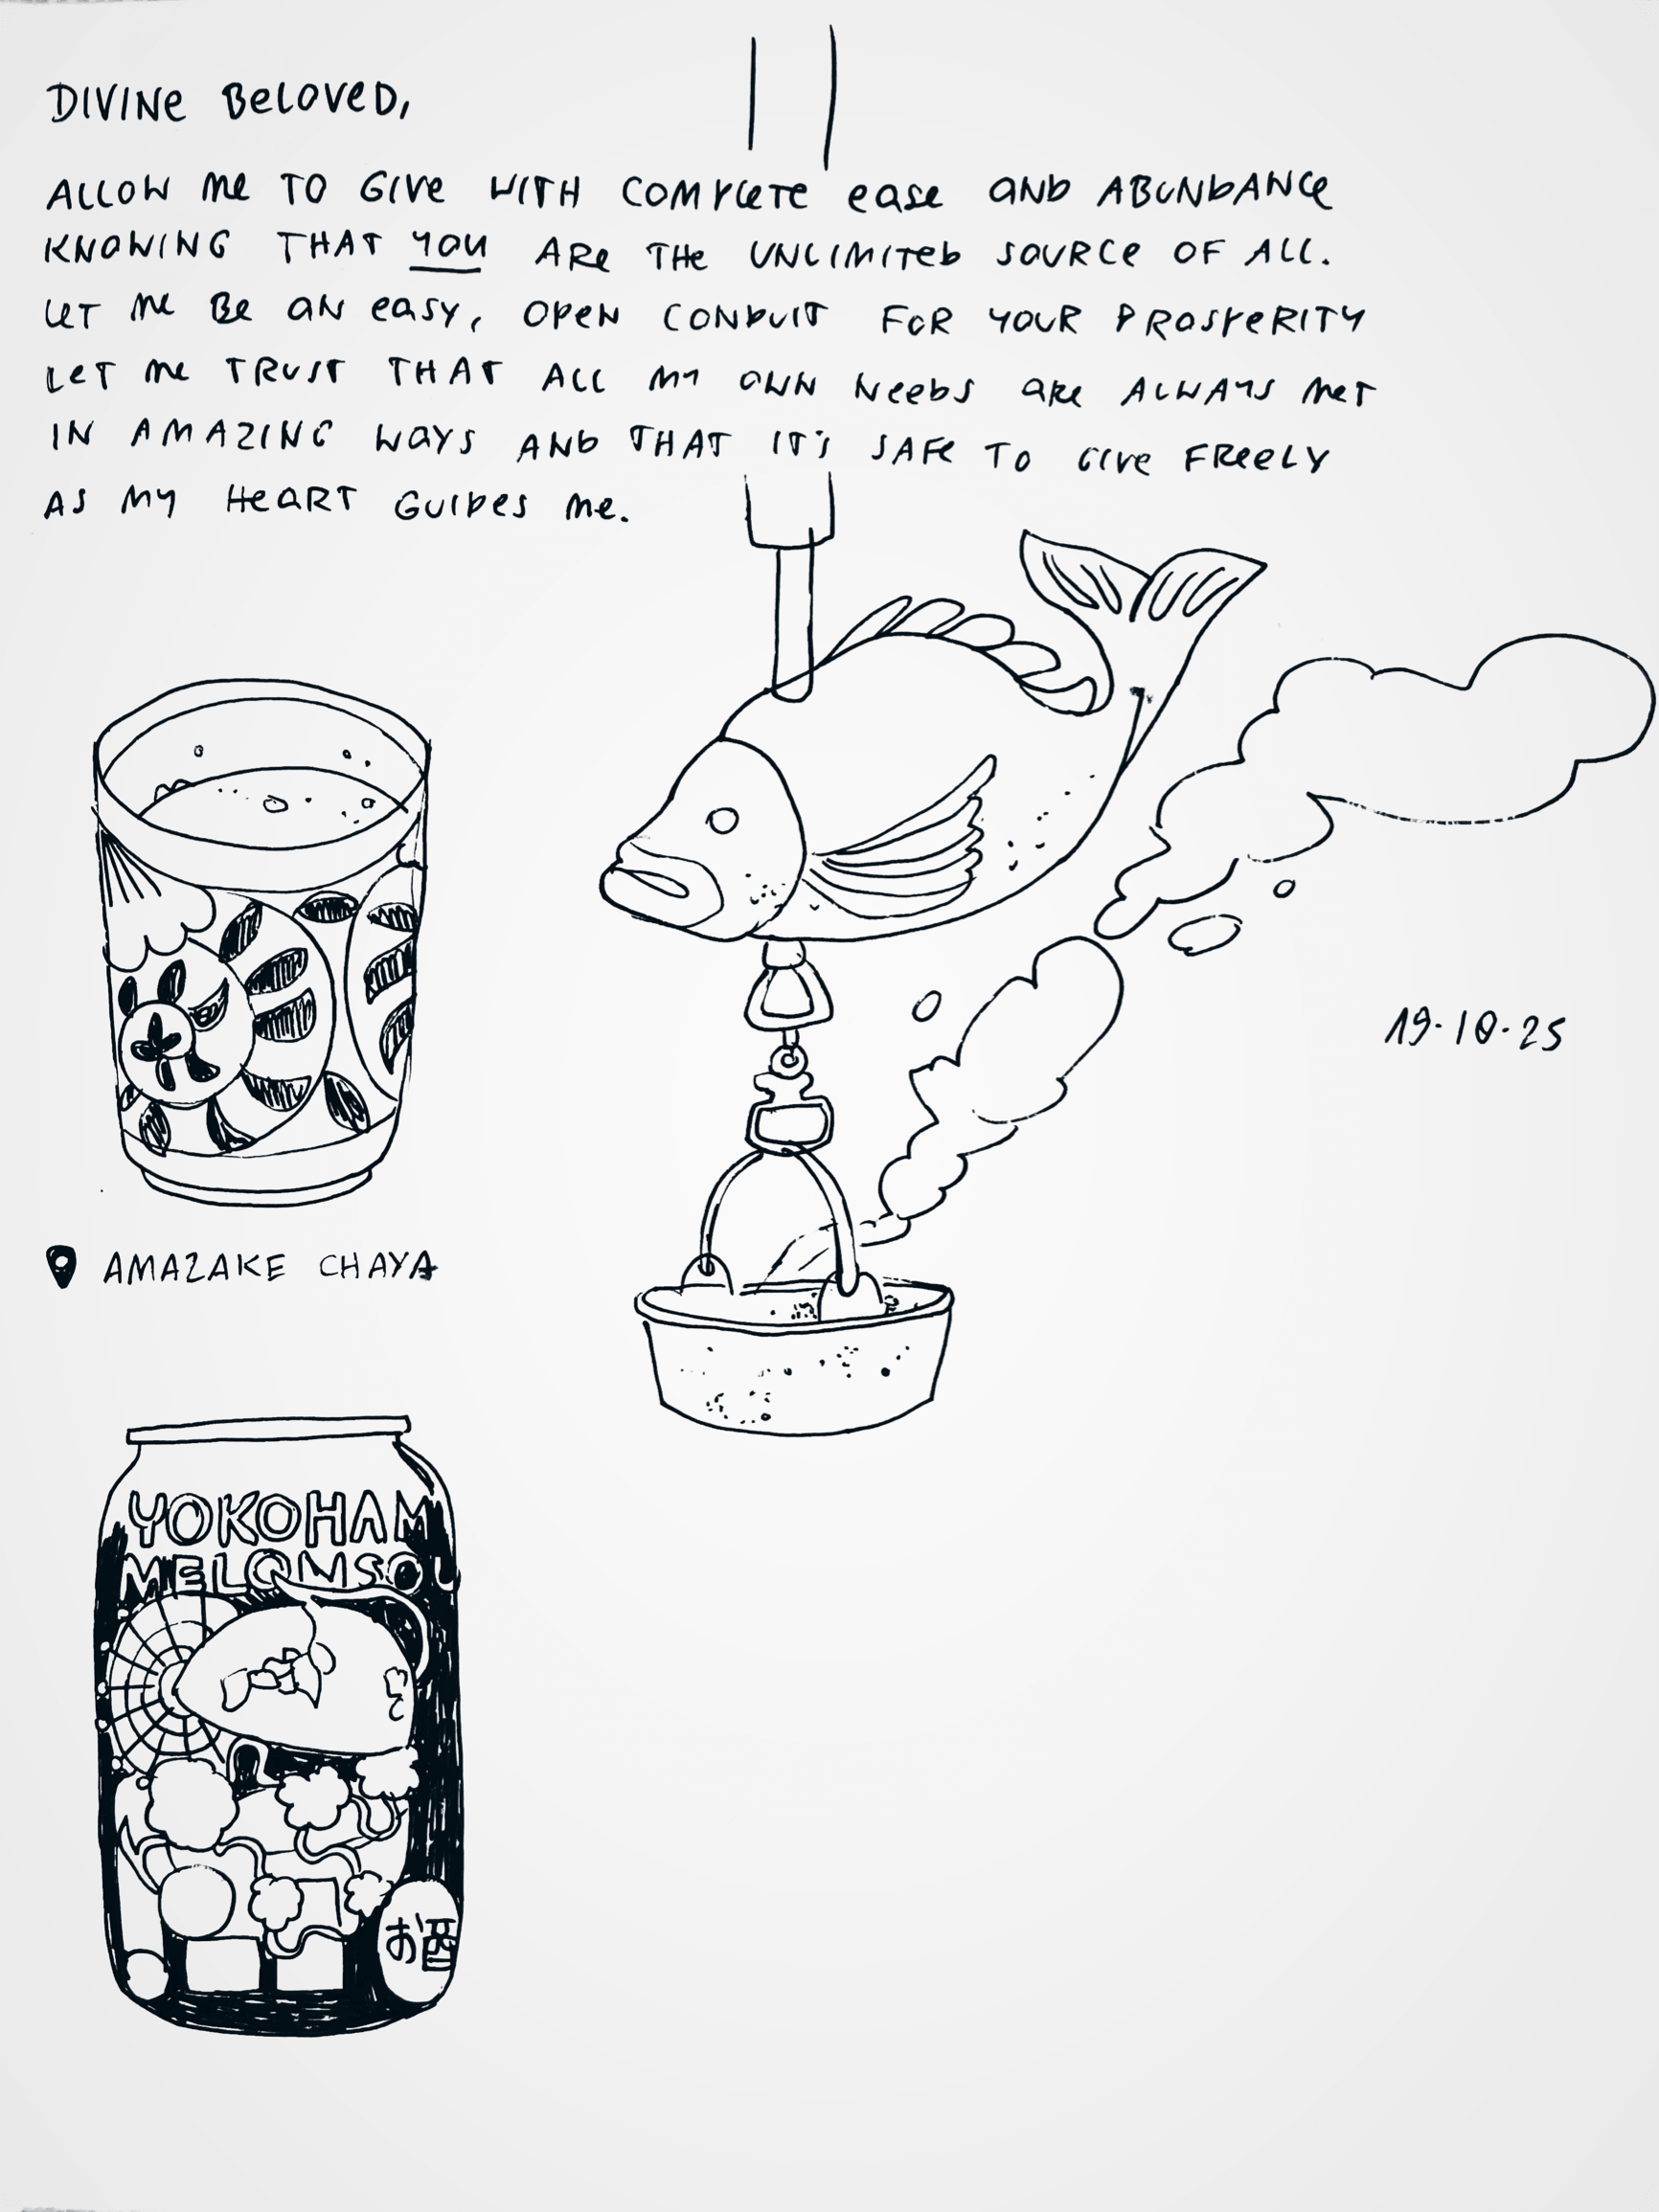 DIVINE BELOVED,
ALLOW ME TO GIVE WITH COMPLETE EASE AND ABUNDANCE
KNOWING THAT YOU ARE THE UNLIMITED SOURCE OF ALL.
LET ME BE AN EASY, OPEN CONDUIT FOR YOUR PROSPERITY
LET ME TRUST THAT ALL MY OWN NEEDS ARE ALWAYS MET
IN AMAZING WAYS AND THAT IT'S SAFE TO GIVE FREELY
AS MY HEART GUIDES ME.
19.10.25
AMAZAKE CHAYA
YOKOHAM
MELONSOU
お酒